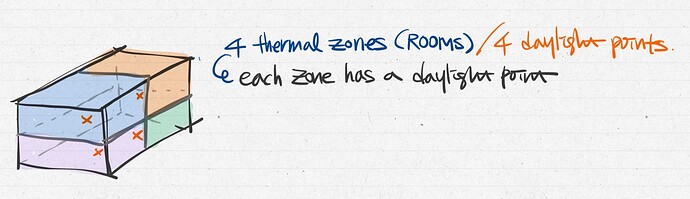 4 thermal zones (ROOMS) / 4 daylight points.
each zone has a daylight point